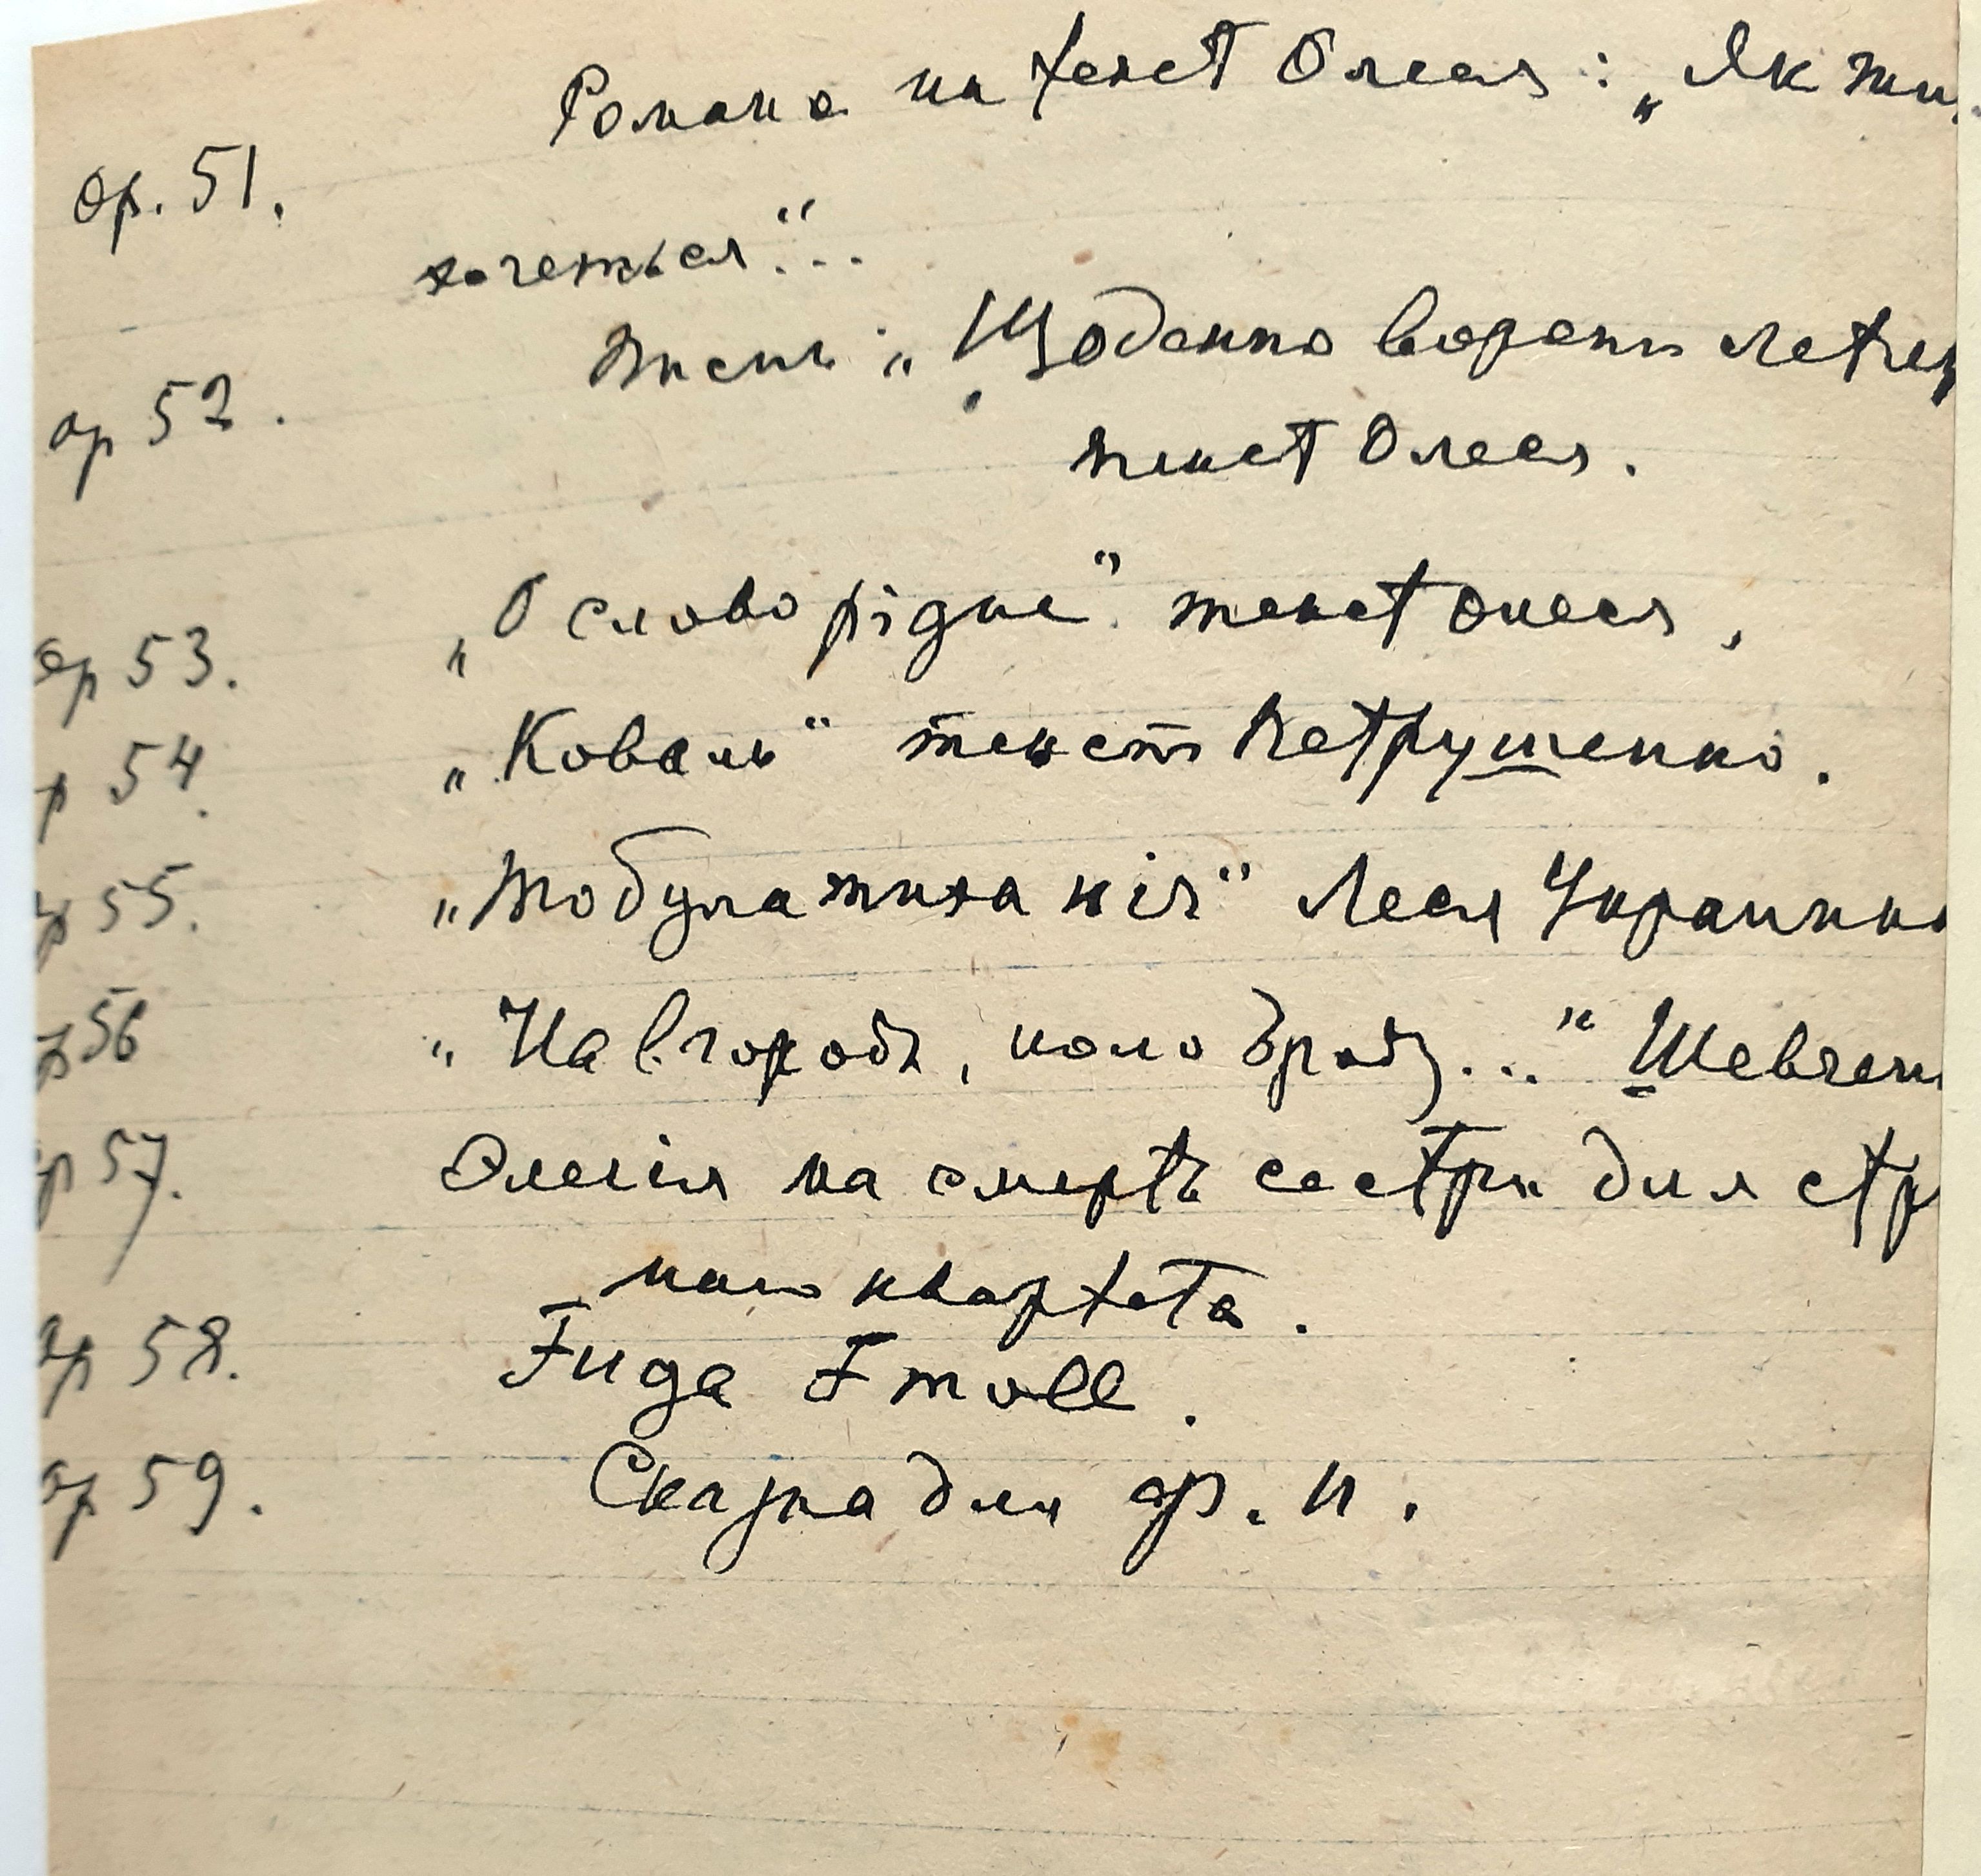 Романс на текст Олеся: „Як жи
op. 51.
хочеться"...
op 52. Пісня: „Щоденно ворони летять
текст Олеся.
op 53. „О слово рідне". текст Олеся.
p 54. „Коваль" текст Петрушенко.
op 55. „То була тиха ніч" Леся Украинка
op 56 „На вгороді, коло броду..." Шевченк
op 57. Элегія на смерть сестри для стр
ного квартета.
op 58. Fuga F moll.
op 59. Сказка для ф. п.